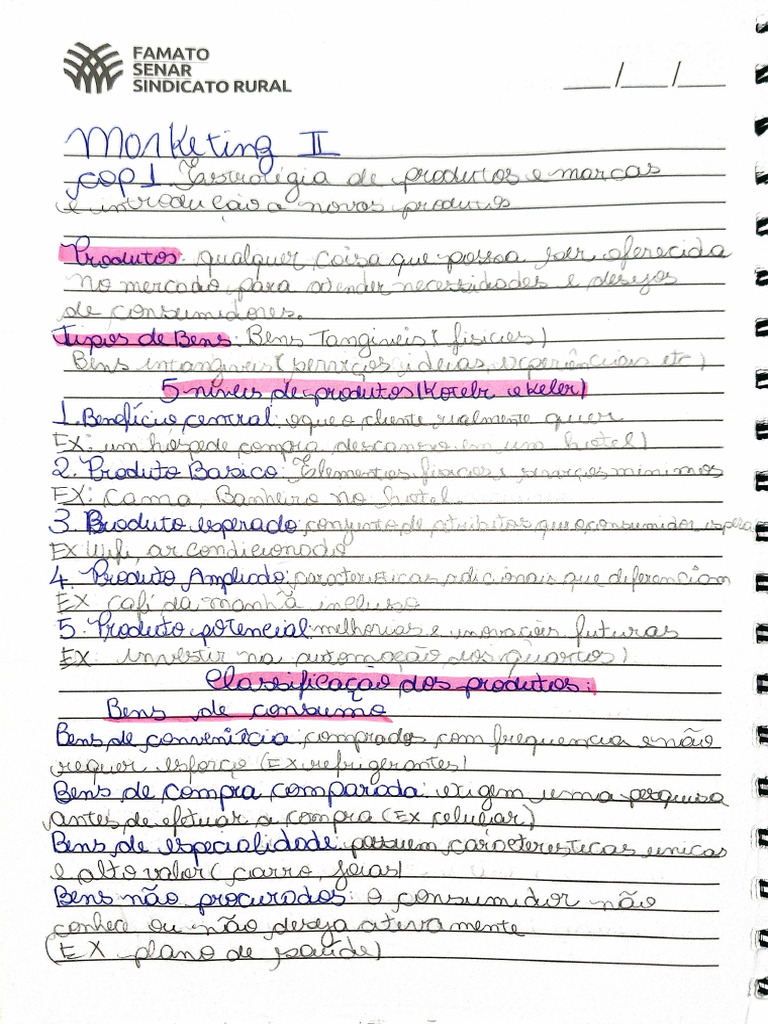 FAMATO
SENAR
SINDICATO RURAL
___/___/___
Marketing II
cap 1. Estratégia de produtos e marcas
e introdução a novos produtos
Produtos: qualquer coisa que possa ser oferecida
no mercado para atender necessidades e desejos
de consumidores.
Tipos de Bens: Bens Tangíveis (físicos)
Bens intangíveis (serviços, ideias, experiências etc)
5 níveis de produtos (Kotelr e keler)
1. Benefício central: o que o cliente realmente quer
EX: um hospede compra descanso em um hotel)
2. Produto Basico: Elementos físicos e serviços minimos
EX: cama, Banheiro no hotel.
3. Produto esperado, conjunto de atributos que o consumidor espera
EX Wifi, ar condicionado
4. Produto Ampliado: características adicionais que diferenciam
EX café da manhã incluso
5. Produto potencial: melhorias e inovações futuras
EX investir na automação dos quartos)
Classificação dos produtos:
Bens de consumo
Bens de conveniêcia: comprados com frequencia e não
requer esforço (EX refrigerantes)
Bens de compra comparada: exigem uma pesquisa
antes de efetuar a compra (EX celuiar)
Bens de especialidade: possuem caracteresticas unicas
e alto valor (carro, joias)
Bens não procurados: o consumidor não
conhece ou não deseja ativamente
(EX plano de saúde)